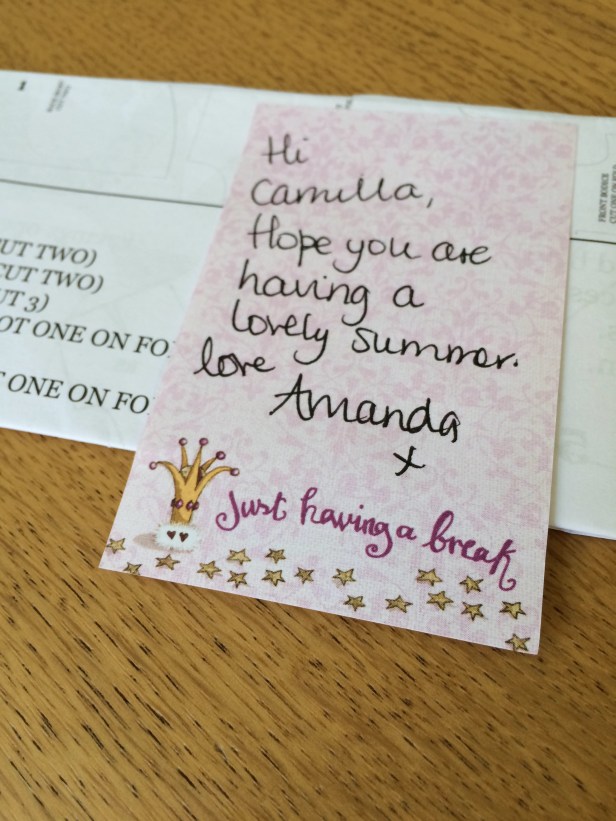 Hi
Camilla,
Hope you are
having a
lovely summer.
love
Amanda
x
Just having a break
CUT TWO)
CUT TWO)
UT 3)
OT ONE ON FO
ONE ON FO
FRONT BODICE